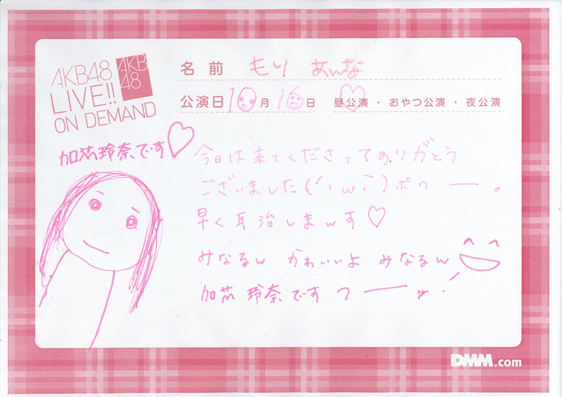 AKB48
LIVE!!
ON DEMAND
AKB
48
名前 もり あんな
公演日 10月 16日 昼公演・おやつ公演・夜公演
加藤玲奈です♡
今日は来てくださってありがとう
ございました(´・ω・`)ポっー。
早く耳治しまんす♡
みなるん かわいいよ みなるん
加藤玲奈です つーw
DMM.com